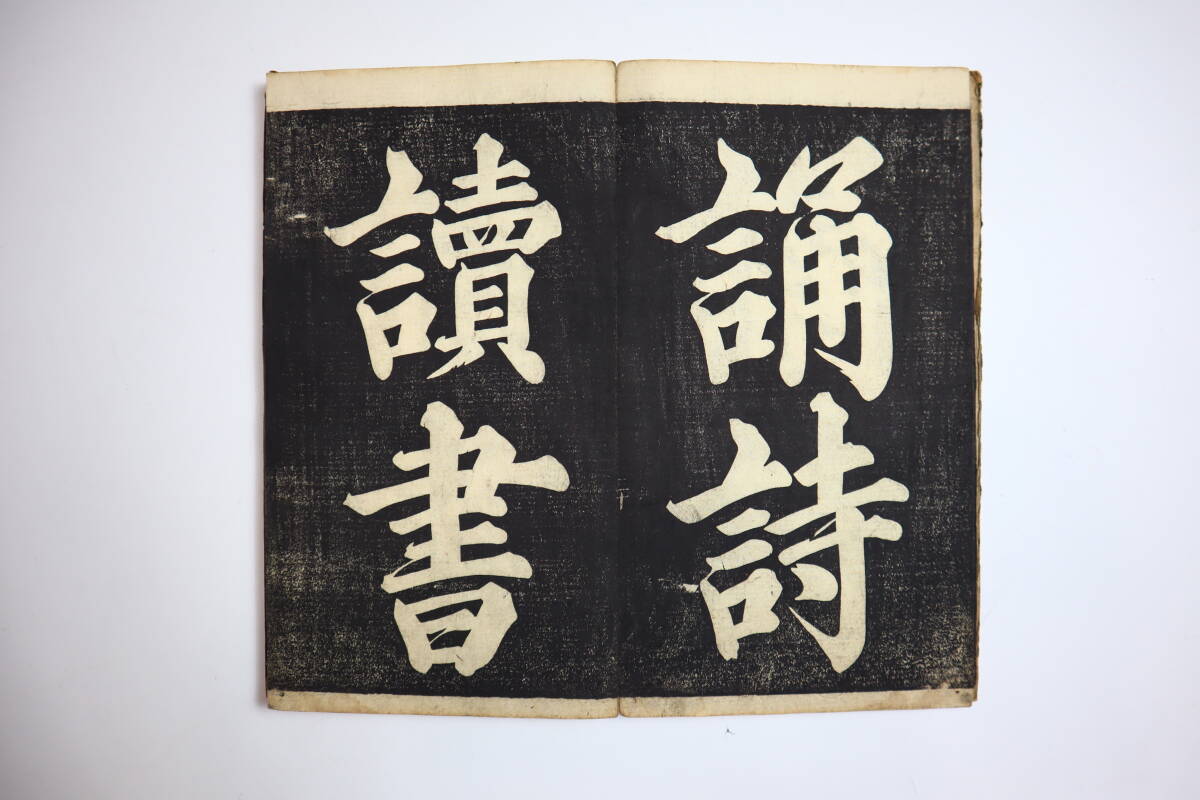 誦詩
讀書